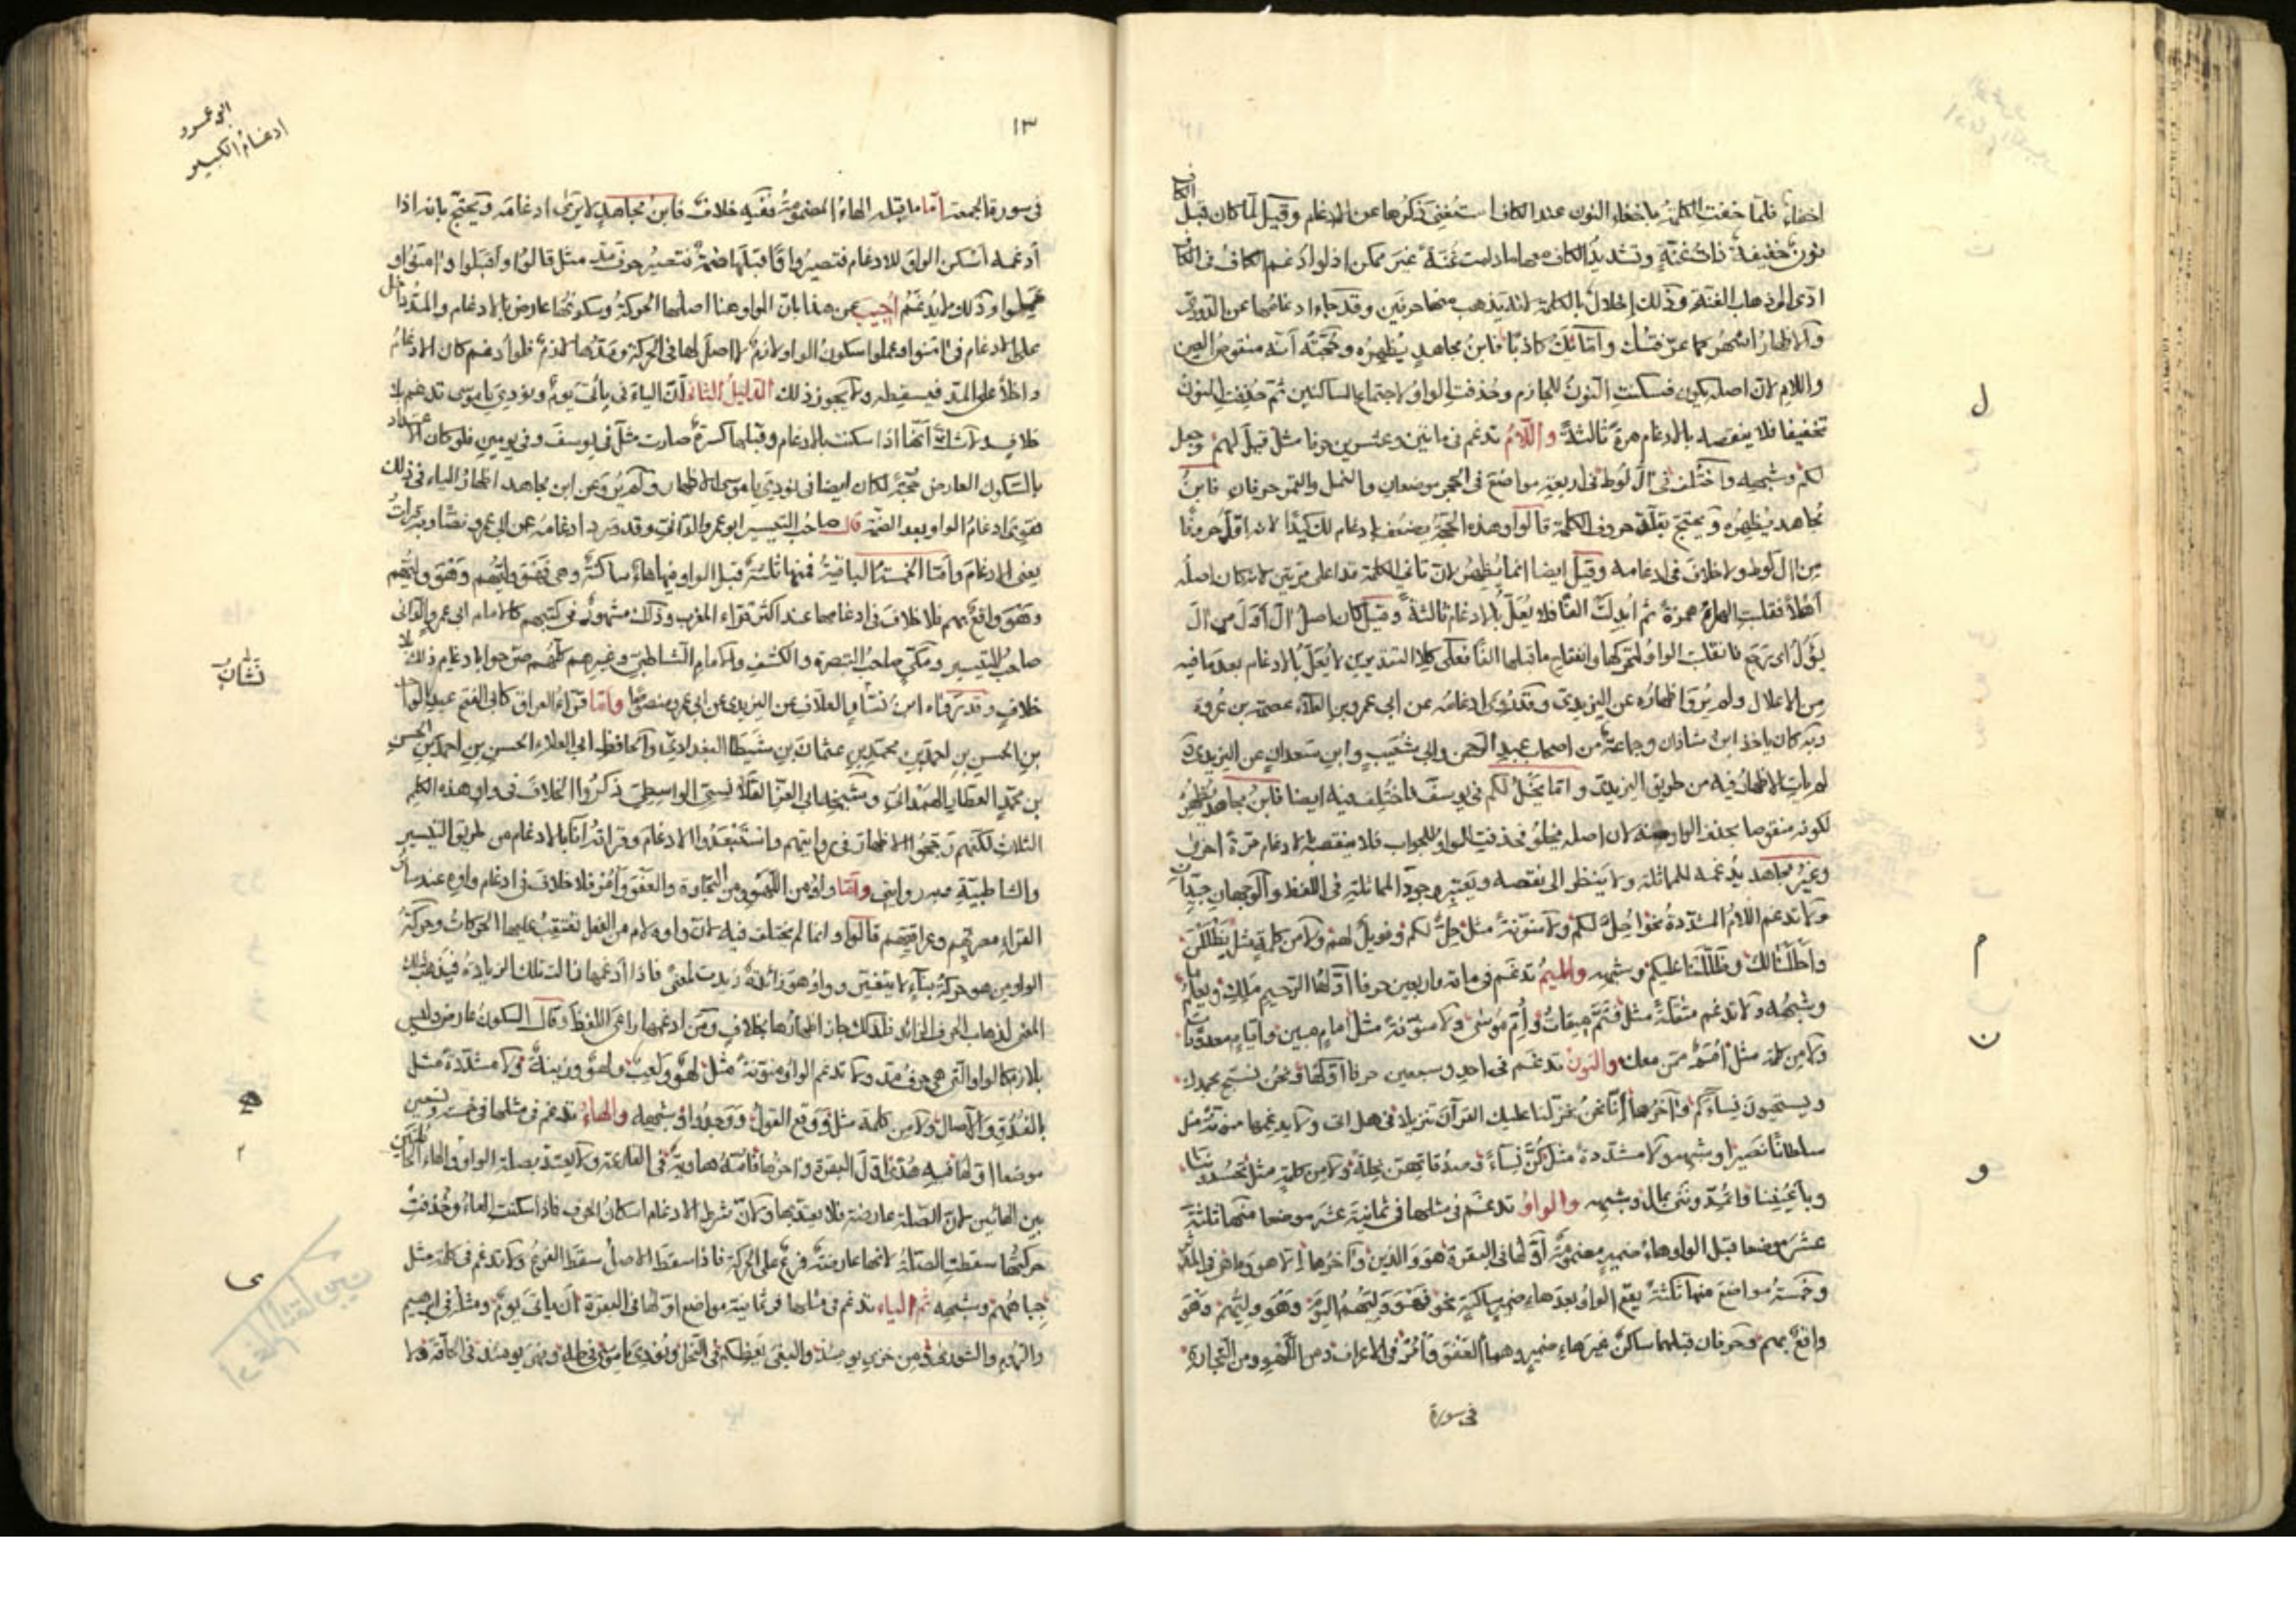 اخفاء فلما خفت الكلمة باخفاء النون عند الكاف استغنى ذكرها عن الادغام وقيل لما كان قبل الكاف
نون خفيفة ذات غنة وتشديد الكاف معها ما دامت غنة غير ممكن اذ لو ادغم الكاف فى الكاف
ادى الى ذهاب الغنة وذلك اخلال بالكلمة لئلا يذهب منها حرفين وقد جاء ادغامها عن الدورى
والاظهار اشهر كما عرفتك واما يك كاذبا فابن مجاهد يظهره وحجته انه منقوص العين
واللام لان اصله يكون فسكنت النون للجازم وحذفت الواو لاجتماع الساكنين ثم حذفت النون
تخفيفا فلا ينقصه بالادغام مرة ثالثة واللام تدغم فى مائتين وعشرين حرفا مثل قيل لهم وجعل
لكم وشبهه واختلف فى ال لوط فى اربعة مواضع فى الحجر موضعان والنمل والقمر حرفان فابن
مجاهد يظهره ويحتج بقلة حروف الكلمة قالوا وهذه الحجة يضعف بادغام لك كيدا لانه اقل حروفا
من ال لوط ولا خلاف فى ادغامه وقيل ايضا انما يظهر لان ثانى الكلمة قد اعل مرتين لانه كان اصله
اهلا فقلبت الهاء همزة ثم ابدلت الفا فلا يعل بالادغام ثالثة وقيل كان اصل ال اول من ال
يؤل اى رجع فانقلبت الواو لتحركها وانفتاح ما قبلها الفا فعلى كلا التقديرين لا يعل بالادغام بعد ما فيه
من الاعلال ولم يرو اظهاره عن اليزيدى وقد روى ادغامه عن ابى عمرو بن العلاء عصمة بن عروة
وبه كان ياخذ ابن شاذان وجماعة من اصحاب عبد الرحمن وابى شعيب وابن سعدان عن اليزيدى
لم يات الاظهار فيه من طريق اليزيدى واما يخل لكم فى يوسف فاختلف فيه ايضا فابن مجاهد يظهر
لكونه منقوصا بحذف الواو منه لان اصله يخلو فحذفت الواو للجواب فلا ينقصه بالادغام مرة اخرى
وغير مجاهد يدغمه للمماثلة ولا ينظر الى نقصه ويعتبر وجود المماثلة فى اللفظ والوجهان جيدان
ولا تدغم اللام المشددة نحو احل لكم ولا منونة مثل حل لكم وفويل لهم ولا من كلمة مثل يظللن
واحللنا لك وظللنا عليكم وشبهه والميم تدغم فى مائة واربعين حرفا اولها الرحيم ملك ويعلم ما
وشبهه ولا تدغم مثقلة مثل فتم ميقات وام موسى ولا منونة مثل امام مبين وايام معدودات
ولا من كلمة مثل امم ممن معك والنون تدغم فى احد وسبعين حرفا اولها ونحن نسبح بحمدك
ويستحيون نساءكم واخرها انا نحن نزلنا عليك القران تنزيلا فى هل اتى ولا يدغمها منونة مثل
سلطانا نصيرا وشبهه ولا مشددة مثل كن نساء وصدقاتهن نحلة ولا من كلمة مثل
وباعيننا واتمدونن بمال وشبهه والواو تدغم فى مثلها فى ثمانية عشر موضعا منها ثلثة
عشر موضعا قبل الواو هاء ضمير مضمومة اولها فى البقرة هو والذين واخرها الا هو وما هى فى المدثر
وخمسة مواضع منها ثلثة يقع الواو بعد هاء ضمير ساكنة نحو فهو وليهم اليوم وهو وليهم وهو
واقع بهم وحرفان قبلهما ساكن غير هاء ضمير وهما العفو وأمر فى الاعراف ومن اللهو ومن التجارة
فى سورة
ل
م
ن
و
١٣
ابى عمرو
ادغام الكبير
فى سورة الجمعة اما ما قبله الهاء المضمومة ففيه خلاف فابن مجاهد لا يرى ادغامه ويحتج بانه اذا
ادغمه اسكن الواو للادغام فتصير واوا قبلها ضمة فتصير حرف مد مثل قالوا واقبلوا وامنوا و
عملوا وذلك لا يدغم اجيب عن هذا بان الواو هنا اصلها الحركة وسكونها عارض بالادغام والمد يدخل
على الادغام فى امنوا وعملوا سكون الواو لازم لا اصل لها فى الحركة ومدها لازم فلو ادغم كان الادغام
داخلا على المد فيسقطه ولا يجوز ذلك الدليل الثانى ان الياء فى ياتى يوم ونودى يا موسى تدغم بلا
خلاف ولا شك انها اذا سكنت بالادغام وقبلها كسرة صارت مثل فى يوسف وفى يومين فلو كان الاعتداد
بالسكون العارض حجة لكان ايضا فى نودى يا موسى الاظهار ولم يرو عن ابن مجاهد اظهار الياء فى ذلك
فقوى ادغام الواو بعد الضمة قال صاحب التيسير ابو عمرو الدانى وقد ورد ادغامه عن ابى عمرو نصا وبه قرات
يعنى الادغام واما الخمسة الباقية فمنها ثلثة قبل الواو فيها هاء ساكنة وهى فهو وليهم وهو وليهم
وهو واقع بهم فلا خلاف فى ادغامها عند اكثر قراء المغرب وذلك مشهور فى كتبهم كالامام ابى عمرو الدانى
صاحب التيسير ومكى صاحب التبصرة والكشف والامام الشاطبى وغيرهم كلهم صرحوا بادغام ذلك بلا
خلاف وقد رواه ابن نشاب العلاف عن اليزيدى عن ابى عمرو منصوصا واما قراء العراق كابى الفتح عبد الواحد
بن الحسين بن احمد بن محمد بن عثمان بن شيطا البغدادى والحافظ ابى العلاء الحسن بن احمد بن الحسن
بن محمد العطار الهمدانى وشيخه ابى العز القلانسى الواسطى ذكروا الخلاف فى واو هذه الكلم
الثلاث لكنهم رجحوا الاظهار فى روايتهم واستبعدوا الادغام وقراتنا بالادغام من طريق التيسير
والشاطبية وبه روايتى واما واو من اللهو ومن التجارة والعفو وامر فلا خلاف فى ادغام واوه عند سائر
القراء مصريهم وعراقيهم قالوا وانما لم يختلف فيه لان واوه لام من الفعل تعتقب عليها الحركات وحركة
الواو من هو حركة بناء لا يتغير وواو هو زائدة زيدت لمعنى فاذا ادغمها زالت تلك الزيادة فيذهب ذلك
المعنى لذهاب الحرف الزائد فلذلك جاز اظهارها بخلاف ومن ادغمها راعى اللفظ وقال السكون عارض وليس
بلازم كالواو التى هى حرف مد ولا تدغم الواو منونة مثل لهو ولعب ولهو وزينة ولا مشددة مثل
بالغدو والاصال ولا من كلمة مثل ووقع القول ووجدوا وشبهه والهاء تدغم فى مثلها فى خمسة وتسعين
موضعا اولها فيه هدى اول البقرة واخرها فامه هاوية فى القارعة ولا يعتد بصلة الواو والهاء الكائنين
بين الهائين لان الصلة عارضة فلا يعتد بها ولان شرط الادغام اسكان الحرف فاذا سكنت الهاء وحذفت
حركتها سقطت الصلة لانها عارضة فرع على الحركة فاذا سقط الاصل سقط الفرع ولا تدغم فى كلمة مثل
جباههم وشبهه ثم الياء تدغم فى مثلها فى ثمانية مواضع اولها فى البقرة ان ياتى يوم ومثله فى ابرهيم
والروم والشورى ومن خزى يومئذ والبغى يعظكم فى النحل ونودى يا موسى فى طه وفهى يومئذ فى الحاقة ولا
نشاب
ى